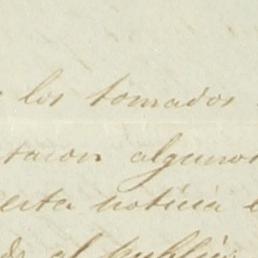 los tomados
taron algunos
esta noticia
al público